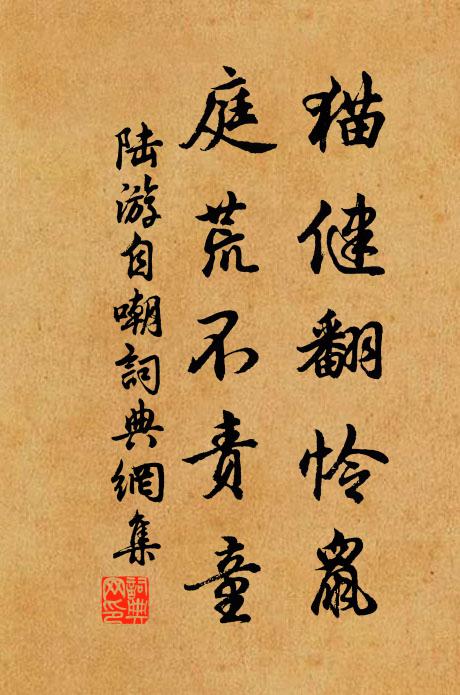 猫健翻怜鼠
庭荒不责童
陆游自嘲詞典網集
詞典网印